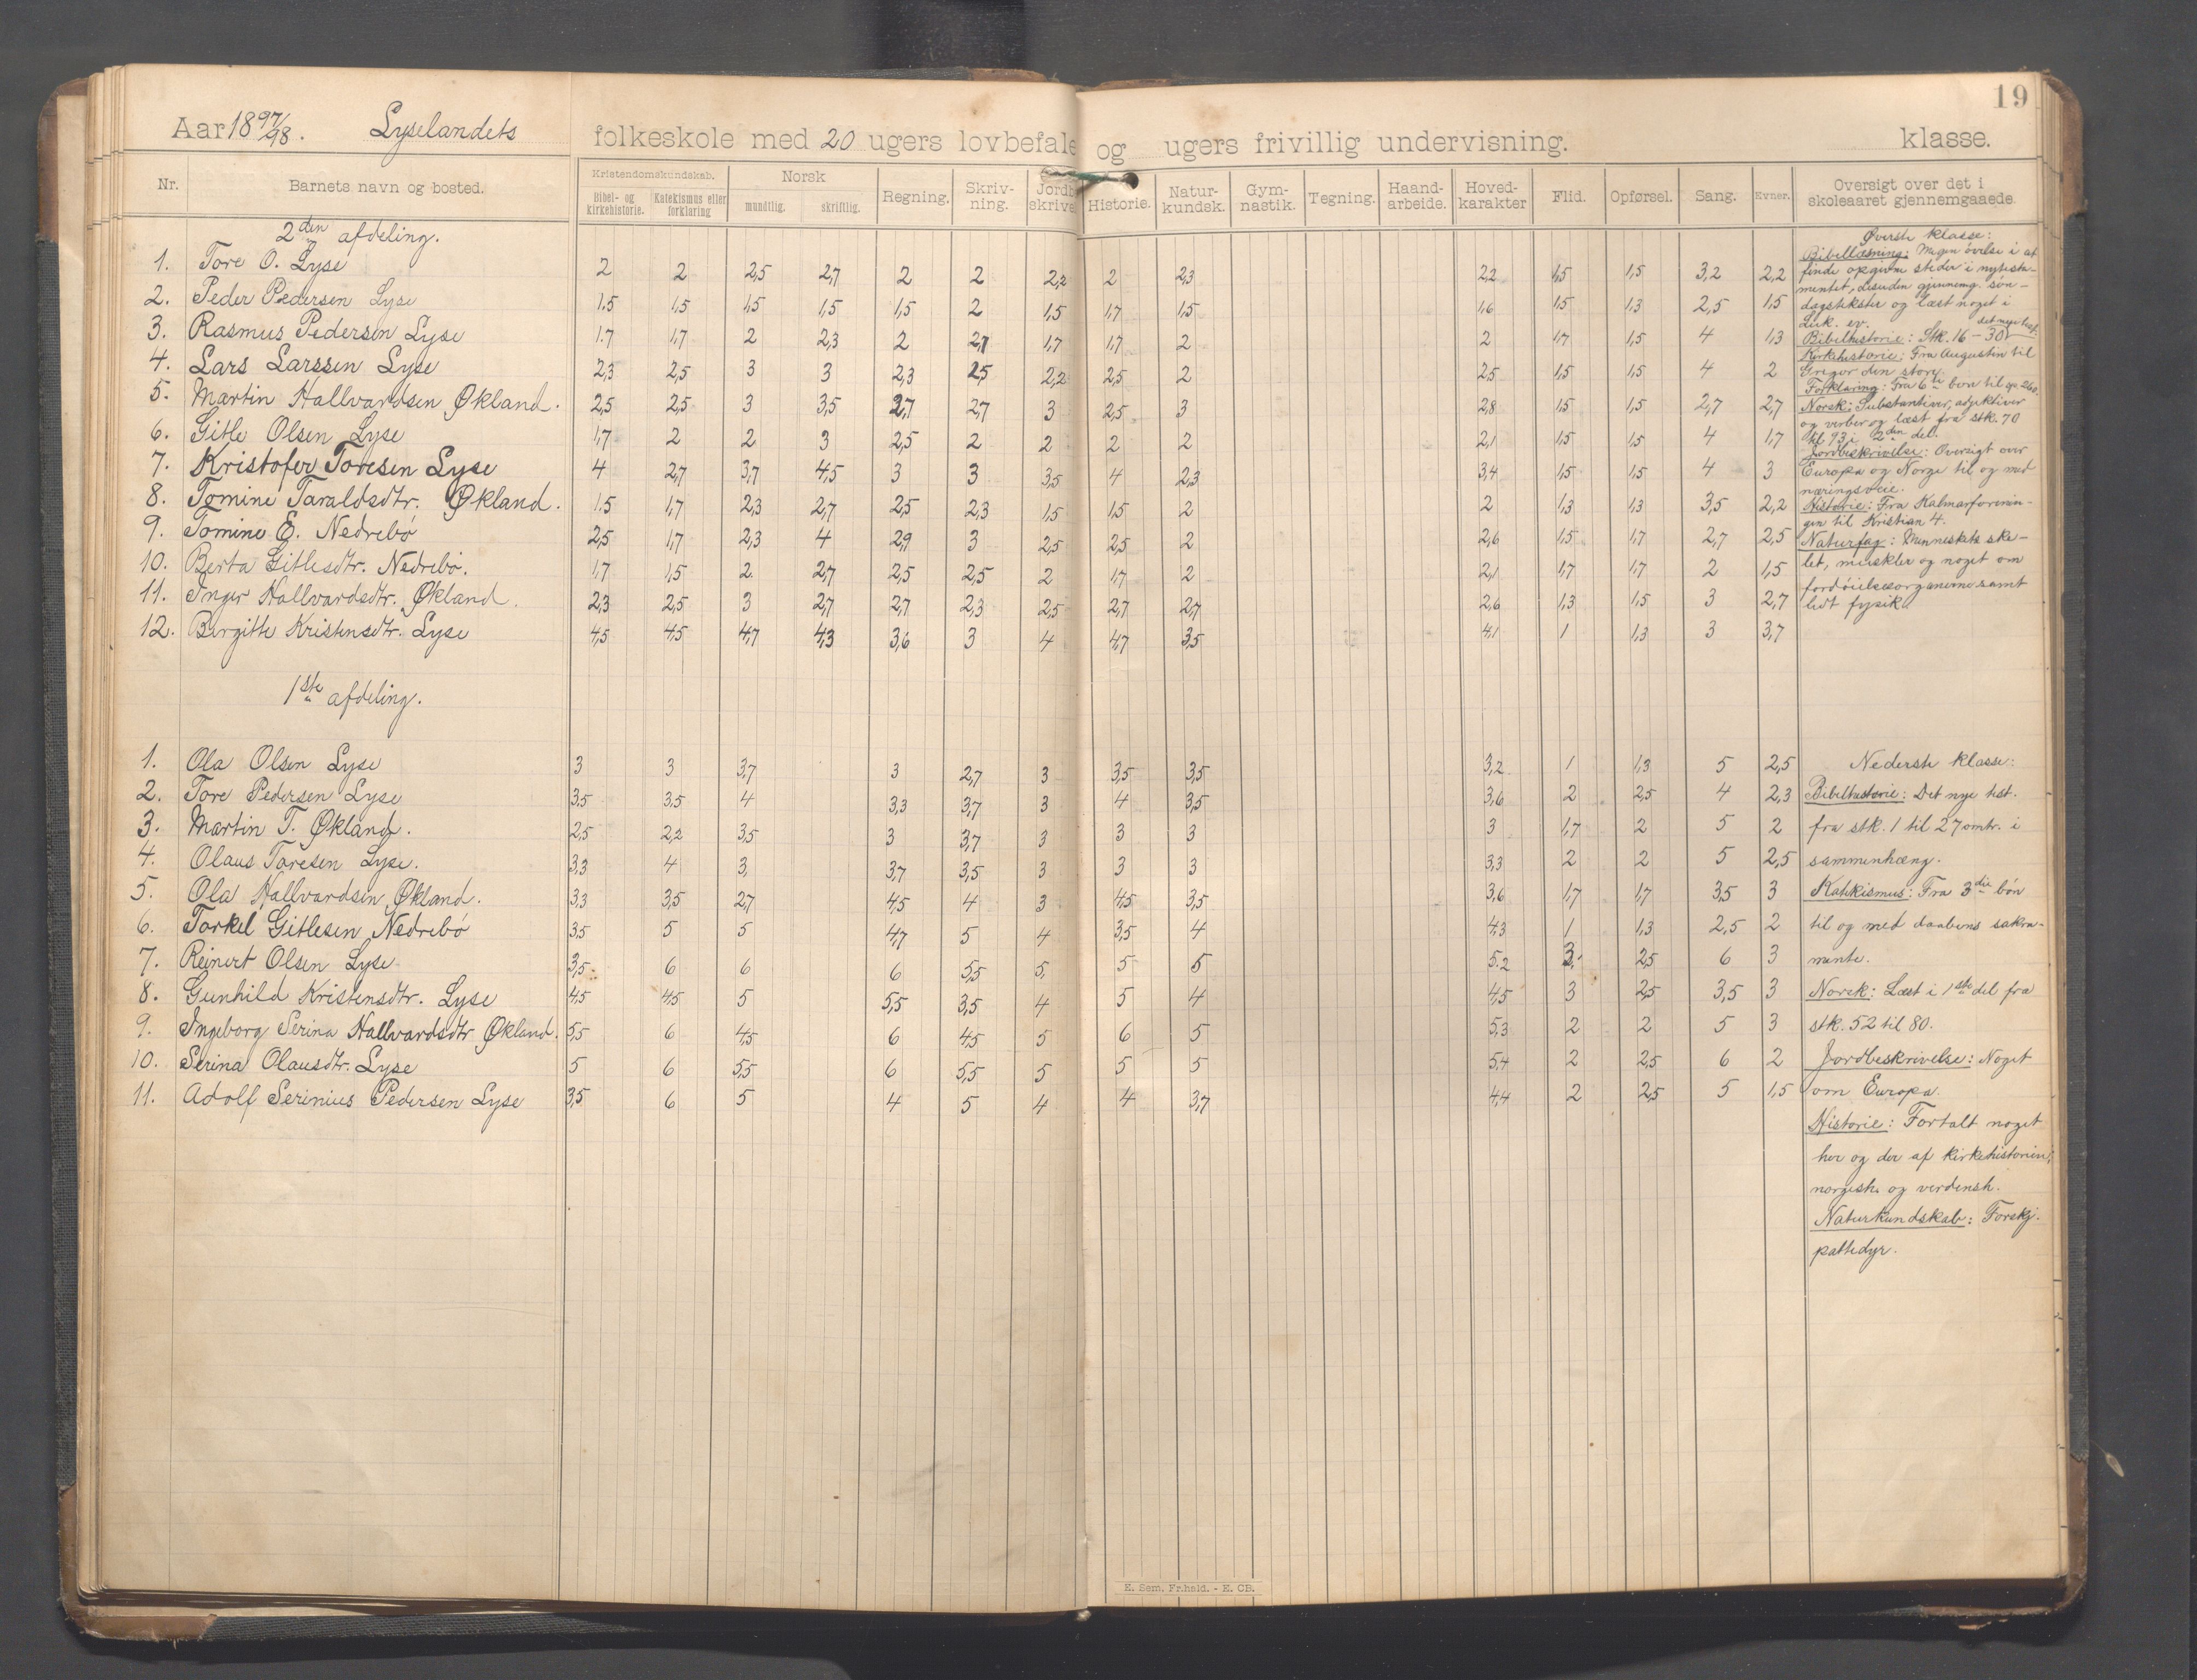 19
Aar 1897/98. Lyselandets folkeskole med 20 ugers lovbefale og ugers frivillig undervisning. klasse.
Nr. Barnets navn og bosted. Kristendomskundskab. Bibel- og kirkehistorie. Katekismus eller forklaring Norsk mundtlig. skriftlig. Regning. Skriv-ning. Jordb skrive Historie. Natur-kundsk. Gym-nastik. Tegning. Haand-arbeide. Hoved-karakter Flid. Opførsel. Sang. Evner. Oversigt over det i skoleaaret gjennemgaaede.
2den afdeling.
1. Tore O. Lyse 2 2 2,5 2,7 2 2 2,2 2 2,3 2,2 1,5 1,5 3,2 2,2
2. Peder Pedersen Lyse 1.5 1,5 1,5 1,5 1,5 2 1,5 1,7 1,5 1,6 1,5 1,3 2,5 1,5
3. Rasmus Pedersen Lyse 1.7 1,7 2 2,3 2 2,7 1,7 1,7 2 2 1,7 1,5 4 1,3
4. Lars Larssen Lyse 2,3 2,5 3 3 2,3 2,5 2,2 2,5 2 2,5 1,5 1,5 4 2
5. Martin Hallvardsen Økland. 2,5 2,5 3 3,5 2,7 2,7 3 2,5 3 2,8 1,5 1,5 2,7 2,7
6. Gitle Olsen Lyse 1,7 2 2 3 2,5 2 2 2 2 2,1 1,5 1,5 4 1,7
7. Kristofer Toresen Lyse 4 2,7 3,7 4,5 3 3 3,5 4 2,3 3,4 1,5 1,5 4 3
8. Tomine Taraldsdtr. Økland. 1.5 1,7 2,3 2,7 2,5 2,3 1,5 1,5 2 2 1,3 1,3 3,5 2,2
9. Tomine E. Nedrebö 2,5 1,7 2,3 4 2,9 3 2,5 2,5 2 2,6 1,5 1,7 2,7 2,5
10. Berta Gitlesdtr. Nedrebö. 1,7 1,5 2 2,7 2,5 2,5 2 1,7 2 2,1 1,7 1,7 2 1,5
11. Inger Hallvardsdtr. Økland. 2,3 2,5 3 2,7 2,7 2,3 2,5 2,7 2,7 2,6 1,3 1,5 3 2,7
12. Birgitte Kristensdtr. Lyse 4,5 4,5 4,7 4,3 3,6 3 4 4,7 3,5 4,1 1 1,3 3 3,7
Øverste klasse:
Bibellæsning: Megen övelse i at
finde opgivne steder i nytesta-
mentet, desuden gjennemg. sön-
dagstekster og læst noget i
Luk. ev.
Bibelhistorie: Stk. 16-38 det nye test.
Kirkehistorie: Fra Augustin til
Gregor den store.
Forklaring: Fra 6te bön til sp. 260.
Norsk: Substantiver, adjektiver
og verber og læst fra stk. 70
til 93 i 2den del.
Jordbeskrivelse: Oversigt over
Europa og Norge til og med
næringsveie.
Historie: Fra Kalmarforenin-
gen til Kristian 4.
Naturfag: Menneskets ske-
let, muskler og noget om
fordöielsesorganerne samt
lidt fysik.
1ste afdeling.
1. Ola Olsen Lyse 3 3 3,7 3 2,7 3 3,5 3,5 3,2 1 1,3 5 2,5
2. Tore Pedersen Lyse 3,5 3,5 4 3,3 3,7 3 4 3,5 3,6 2 2,5 4 2,3
3. Martin T. Økland. 2,5 2,2 3,5 3 3,7 3 3 3 3 1,7 2 5 2
4. Olaus Toresen Lyse. 3,3 4 3, 3,7 3,5 3 3 3 3,3 2 2 5 2,5
5. Ola Hallvardsen Økland. 3,3 3,5 2,7 4,5 4 3 4,5 3,5 3,6 1,7 1,7 3,5 3
6. Torkel Gitlesen Nedrebö 3,5 5 5 4,7 5 4 3,5 4 4,3 1 1,3 2,5 2
7. Reinert Olsen Lyse 3,5 6 6 6 5,5 5, 5 5 5.2 3, 2,5 6 3
8. Gunhild Kristensdtr. Lyse 4,5 4,5 5 5,5 3,5 4 5 4 4,5 3 2,5 3,5 3
9. Ingeborg Serina Hallvardsdtr Økland. 5,5 6 4,5 6 4,5 5 6 5 5,3 2 2 5 3
10. Serina Olausdtr. Lyse 5 6 5,5 6 5,5 5 5 5 5,4 2 2,5 6 2
11. Adolf Serinius Pedersen Lyse 3,5 6 5 4 5 4 4 3,7 4,4 2 2,5 5 1,5
Nederste klasse:
Bibelhistorie: Det nye test.
fra stk. 1 til 27 omtr. i
sammenhæng.
Katekismus: Fra 3die bön
til og med daabens sakra-
mente.
Norsk: Læst i 1ste del fra
stk. 52 til 80.
Jordbeskrivelse: Noget
om Europa.
Historie: Fortalt noget
her og der af kirkehistorien,
norgesh. og verdensh.
Naturkundskab: Forskj.
pattedyr.
E. Sem, Fr.hald. - E. CB.